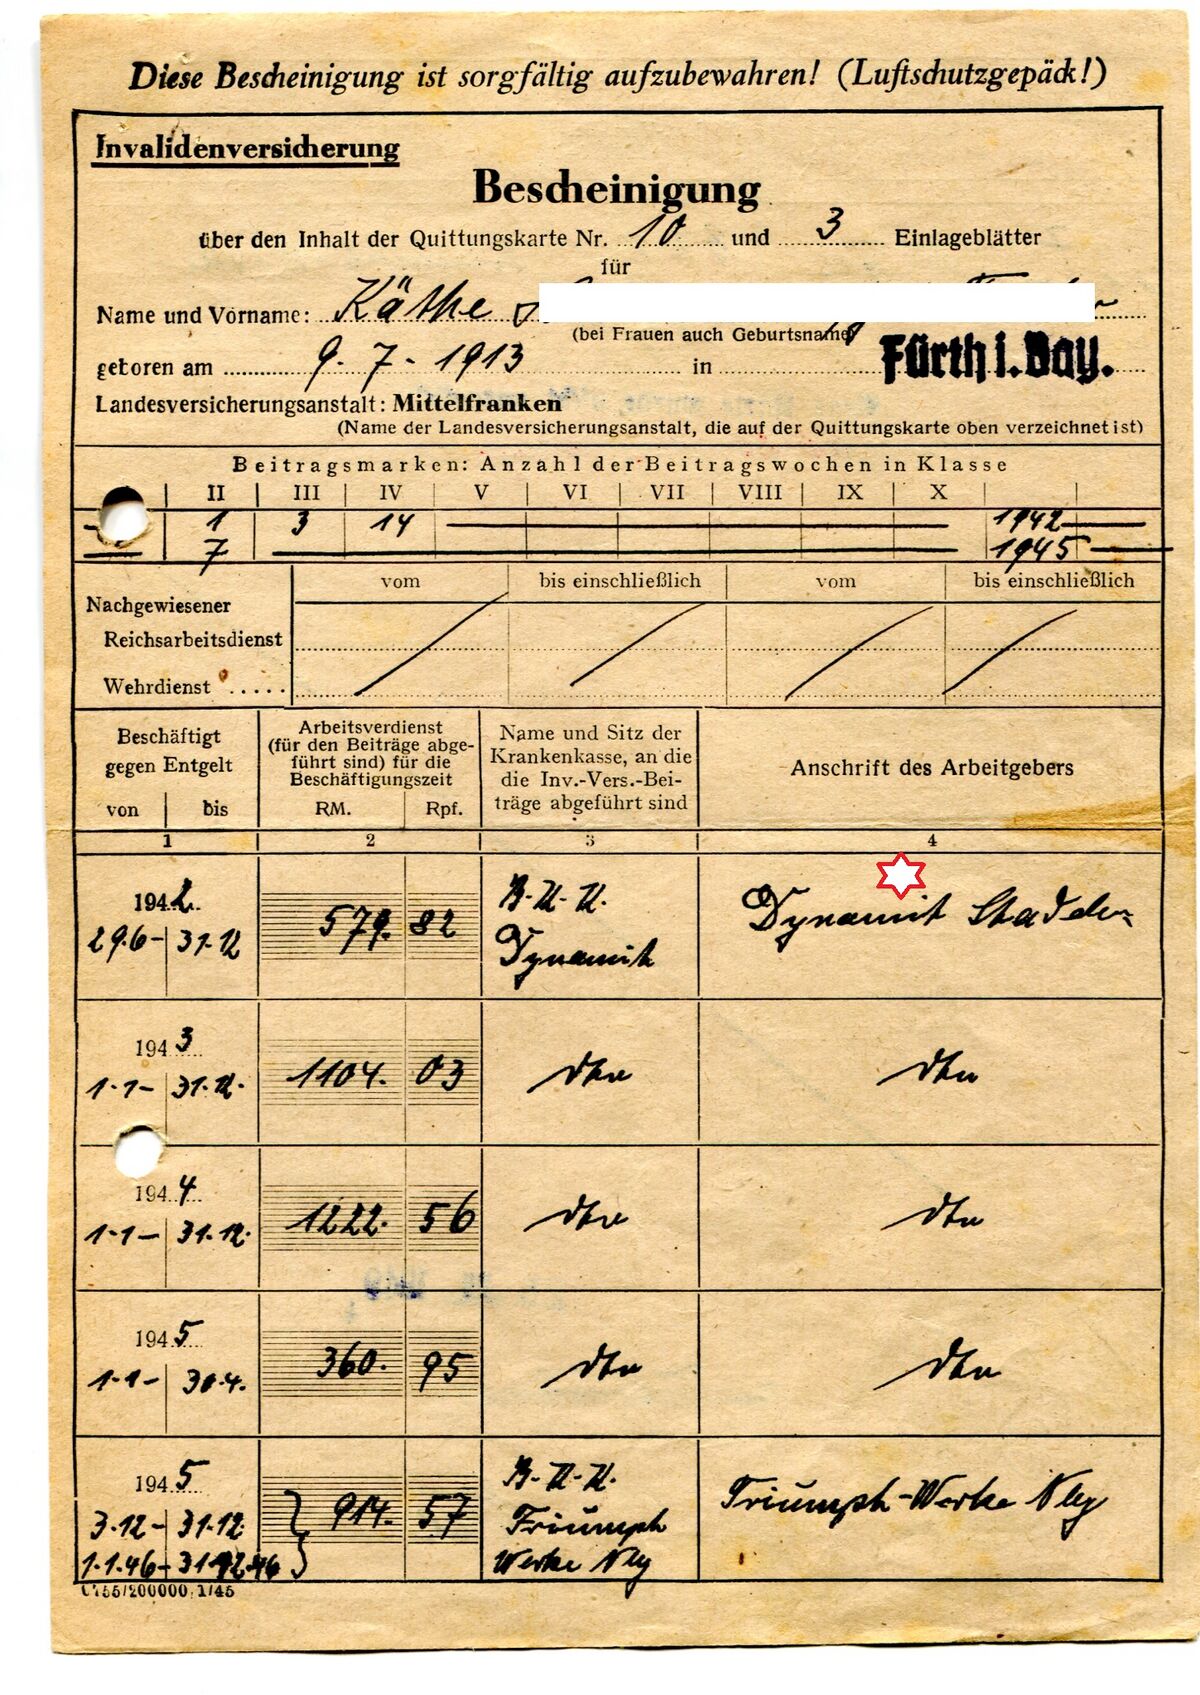 Diese Bescheinigung ist sorgfältig aufzubewahren! (Luftschutzgepäck!)
Invalidenversicherung
Bescheinigung
über den Inhalt der Quittungskarte Nr. 10 und 3 Einlageblätter
für
Name und Vorname: Käthe
(bei Frauen auch Geburtsname)
geboren am 9.7-1913 in Fürth i. Bay.
Landesversicherungsanstalt: Mittelfranken
(Name der Landesversicherungsanstalt, die auf der Quittungskarte oben verzeichnet ist)
Beitragsmarken: Anzahl der Beitragswochen in Klasse
II III IV V VI VII VIII IX X
1 3 14 1942
7 1945
vom bis einschließlich vom bis einschließlich
Nachgewiesener
Reichsarbeitsdienst
Wehrdienst .....
Beschäftigt gegen Entgelt
von bis
Arbeitsverdienst
(für den Beiträge abge-
führt sind) für die
Beschäftigungszeit
RM. Rpf.
Name und Sitz der
Krankenkasse, an die
die Inv.-Vers.-Bei-
träge abgeführt sind
Anschrift des Arbeitgebers
1 2 3 4
1942
29.6- 31.12 579. 82 B.K.K. Dynamit Dynamit Stadeln
1943
1-1- 31.12. 1104. 03 dto dto
1944
1-1- 31.12. 1222. 56 dto dto
1945
1-1- 30.4. 360. 95 dto dto
1945
3.12- 31.12. 914. 57 B.K.K. Triumph Werke Nbg Triumph-Werke Nbg
1.1.46- 31.12.46
C/55/200000. 1/45